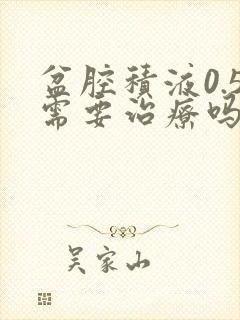 盆腔積液0.5
需要治療嗎
吴家山